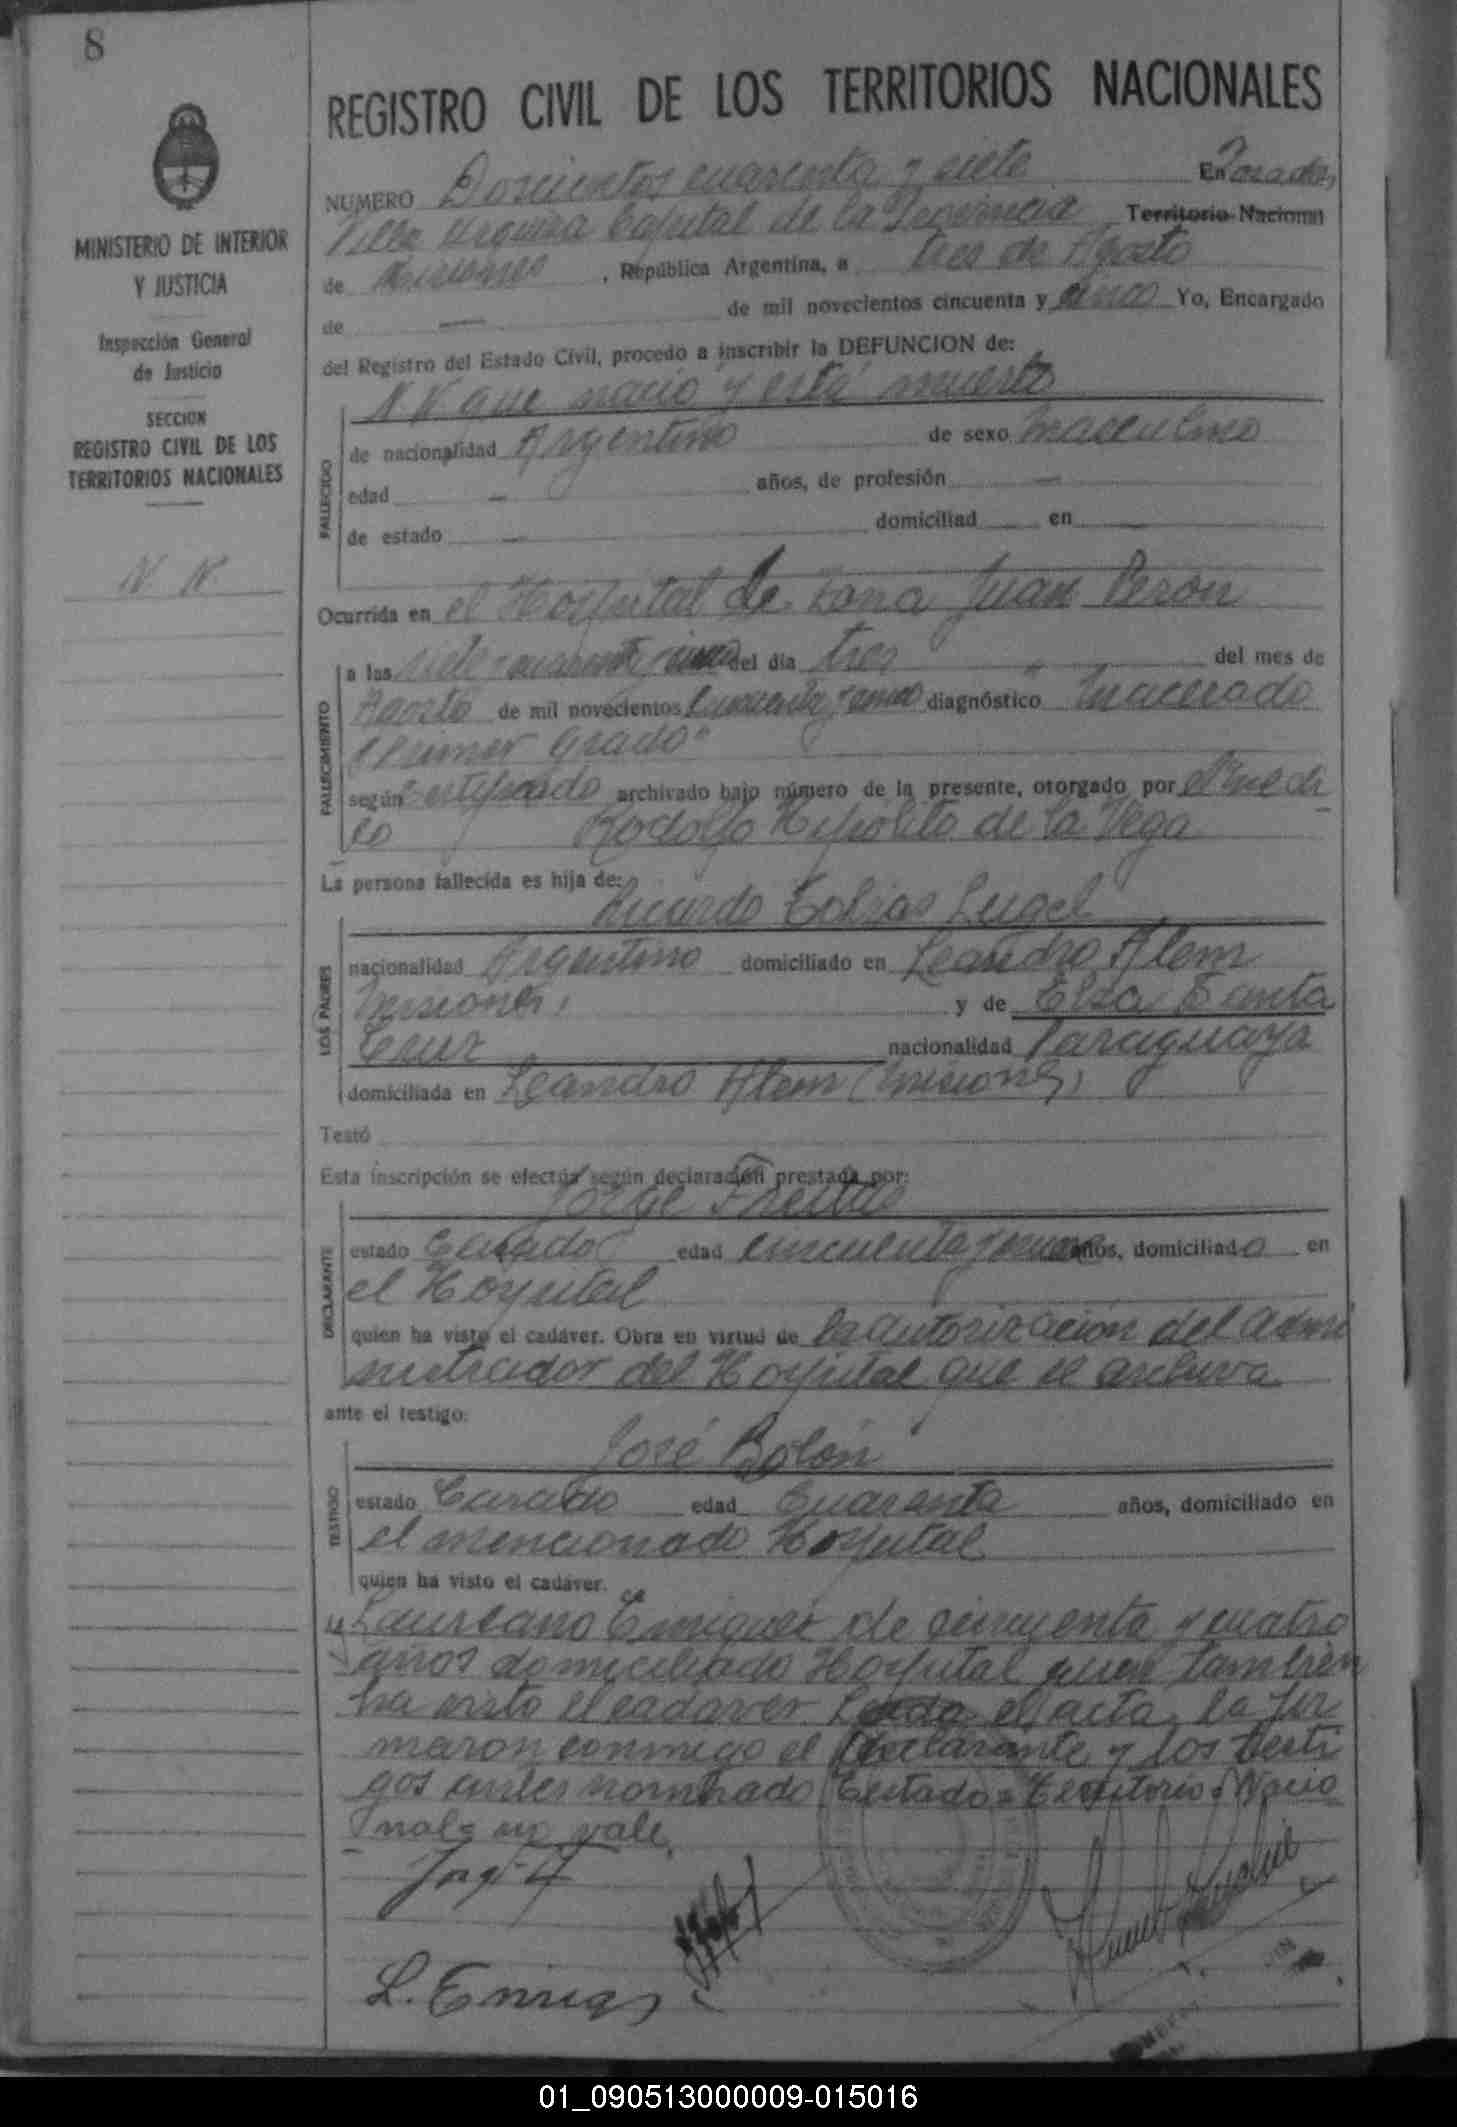 8
REGISTRO CIVIL DE LOS TERRITORIOS NACIONALES
MINISTERIO DE INTERIOR
Y JUSTICIA
Inspección General
de Justicia
SECCION
REGISTRO CIVIL DE LOS
TERRITORIOS NACIONALES
N N
NUMERO Doscientos cuarenta y siete En Posadas
Villa Urquiza Capital de la Provincia Territorio Nacional
de Misiones, República Argentina, a tres de Agosto
de — de mil novecientos cincuenta y cinco Yo, Encargado
del Registro del Estado Civil, procedo a inscribir la DEFUNCION de:
N. N que nació y está muerto
FALLECIDO
de nacionalidad Argentino de sexo Masculino
edad — años, de profesión —
de estado — domiciliad en —
Ocurrida en el Hospital de Zona Juan Perón
FALLECIMIENTO
a las siete cuarenta y cinco del día tres del mes de
Agosto de mil novecientos cincuenta y cinco diagnóstico "Macerado
primer grado"
según certificado archivado bajo número de la presente, otorgado por el médi
co Rodolfo Hipólito de la Vega
La persona fallecida es hija de:
Ricardo Tobias
LOS PADRES
nacionalidad Argentino domiciliado en Leandro Alem
Misiones, y de Elsa Santa
Cruz nacionalidad Paraguaya
domiciliada en Leandro Alem (Misiones)
Testó
Esta inscripción se efectúa según declaración prestada por:
Jorge
DECLARANTE
estado Casado edad cincuenta y años, domiciliado en
el Hospital
quien ha visto el cadáver. Obra en virtud de la autorización del admi
nistrador del Hospital que se archiva
ante el testigo:
José Bolon
TESTIGO
estado Casado edad Cuarenta años, domiciliado en
el mencionado Hospital
quien ha visto el cadáver.
y Laureano Enriquez de cincuenta y cuatro
años domiciliado Hospital quien también
ha visto el cadaver. Leida el acta, la fir
maron conmigo el declarante y los testi
gos antes nombrado Testado = Territorio = Nacio
nal = no vale.
L. Enriq
01_090513000009-015016